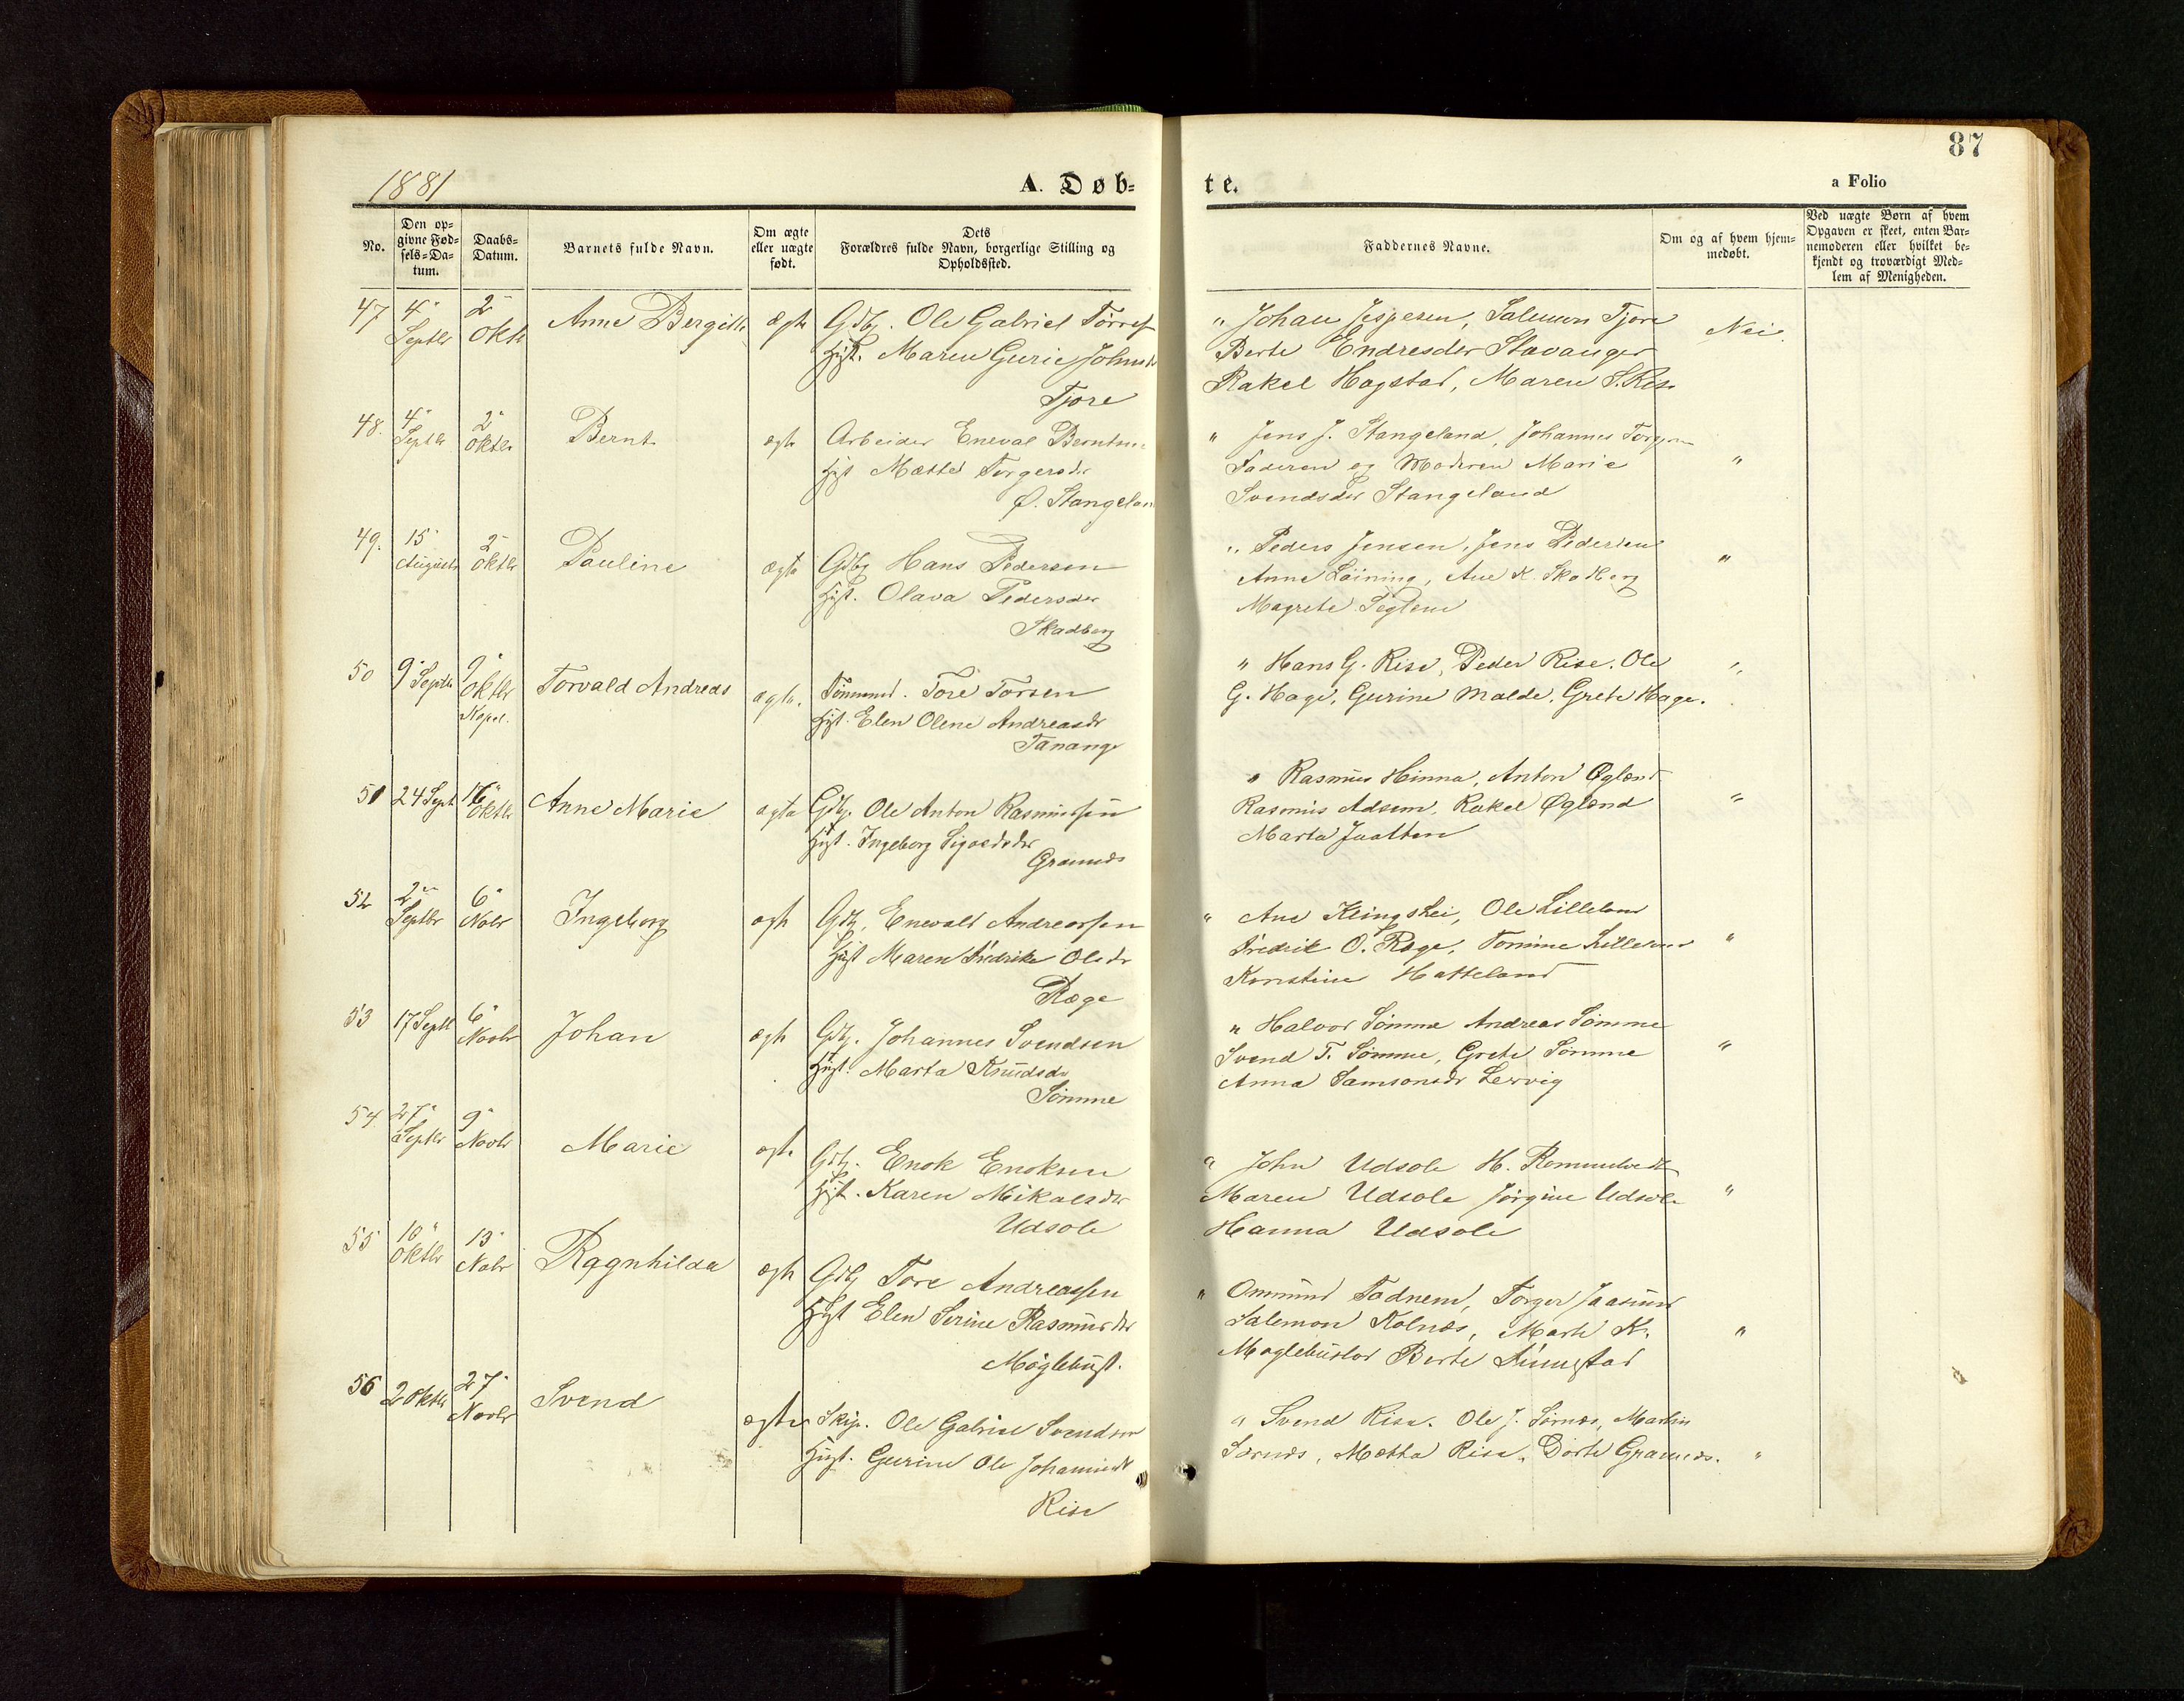 87
1881
A. Døb-
te.
a Folio
No.
Den op-
givne Fød-
sels-Da-
tum.
Daabs-
Datum.
Barnets fulde Navn.
Om ægte
eller uægte
født.
Dets
Forældres fulde Navn, borgerlige Stilling og
Opholdssted.
Faddernes Navne.
Om og af hvem hjem-
medøbt.
Ved uægte Børn af hvem
Opgaven er skeet, enten Bar-
nemoderen eller hvilket be-
kjendt og troværdigt Med-
lem af Menigheden.
47 4 Septbr 2 Oktb Anne Bergitte ægte Gdbg. Ole Gabriel
Hust. Maren Gurie
Tjore
" Johan Jespersen, Salemon Tjore
Berte Endresdtr Stavanger
Rakel Hogstad, Maren S.
Nei.
48. 4 Septbr 2 Oktbr Bernt ægte Arbeider Eneval
Hust Mætte Torgersdr
Ø. Stangeland
" Jens J. Stangeland, Johannes
Faderen og Moderen Marie
Svendsdtr Stangeland
"
49. 15 August 2 Oktbr Pauline ægte Gdbg Hans Pedersen
Hust. Olava Pedersdtr
Skadberg
" Peders Jensen, Jens Pedersen
Anne Løining, Ane K. Skadberg
Magrete
"
50 9 Septbr 9 Oktbr Kapel. Torvald Andreas ægte. Tore Torsen
Hust. Elen Olene Andreasdr
Tanange
" Hans G. Rise, Peder Rise, Ole
G. Hage, Gurine Malde, Grete Hage.
"
51 24 Sept 16 Oktbr Anne Marie ægte Gdbg. Ole Anton Rasmussen
Hust. Ingeborg
Grannes
" Rasmus Hinna, Anton Øglænd
Rasmus Adsem, Rakel Øglænd
Marta Jaatten
"
52 2 Septbr 6 Nobr Ingeborg ægte Gdbg. Enevald Andreassen
Hust Maren Fredrike Olsdr
Ræge
" Ane Klingshei, Ole Lilleland
Fredrik O. Ræge, Tomine
Hatteland
"
53 17 Septb 6 Novbr Johan ægte Gdbg. Johannes Svendsen
Hust. Marta Knudsdr
Sømme
" Halvor Sømme Andreas Sømme
Svend T. Sømme, Grete Sømme
Anna Samsonsdr Lervig
"
54 27 Septbr 9 Novbr Marie ægte Gdbg. Enok Enoksen
Hust. Karen Mikalsdtr
Udsole
" John Udsole H.
Maren Udsole Jørgine Udsole
Hanna Udsole
"
55 10 Oktbr 13 Nobr Ragnhilda ægte Gdbg Tore Andreassen
Hust Elen Serine Rasmusdtr
" Ommund Todnem, Torger Jaasund
Salemon Kolnes, Marte K.
Berte
"
56 2 Oktbr 27 Novbr Svend ægte Skip. Ole Gabriel Svendsen
Hust. Gurine Ole
Rise
" Svend Rise. Ole J. Sørnes, Martin
Sørnes, Mætha Rise, Dorte Grannes.
"